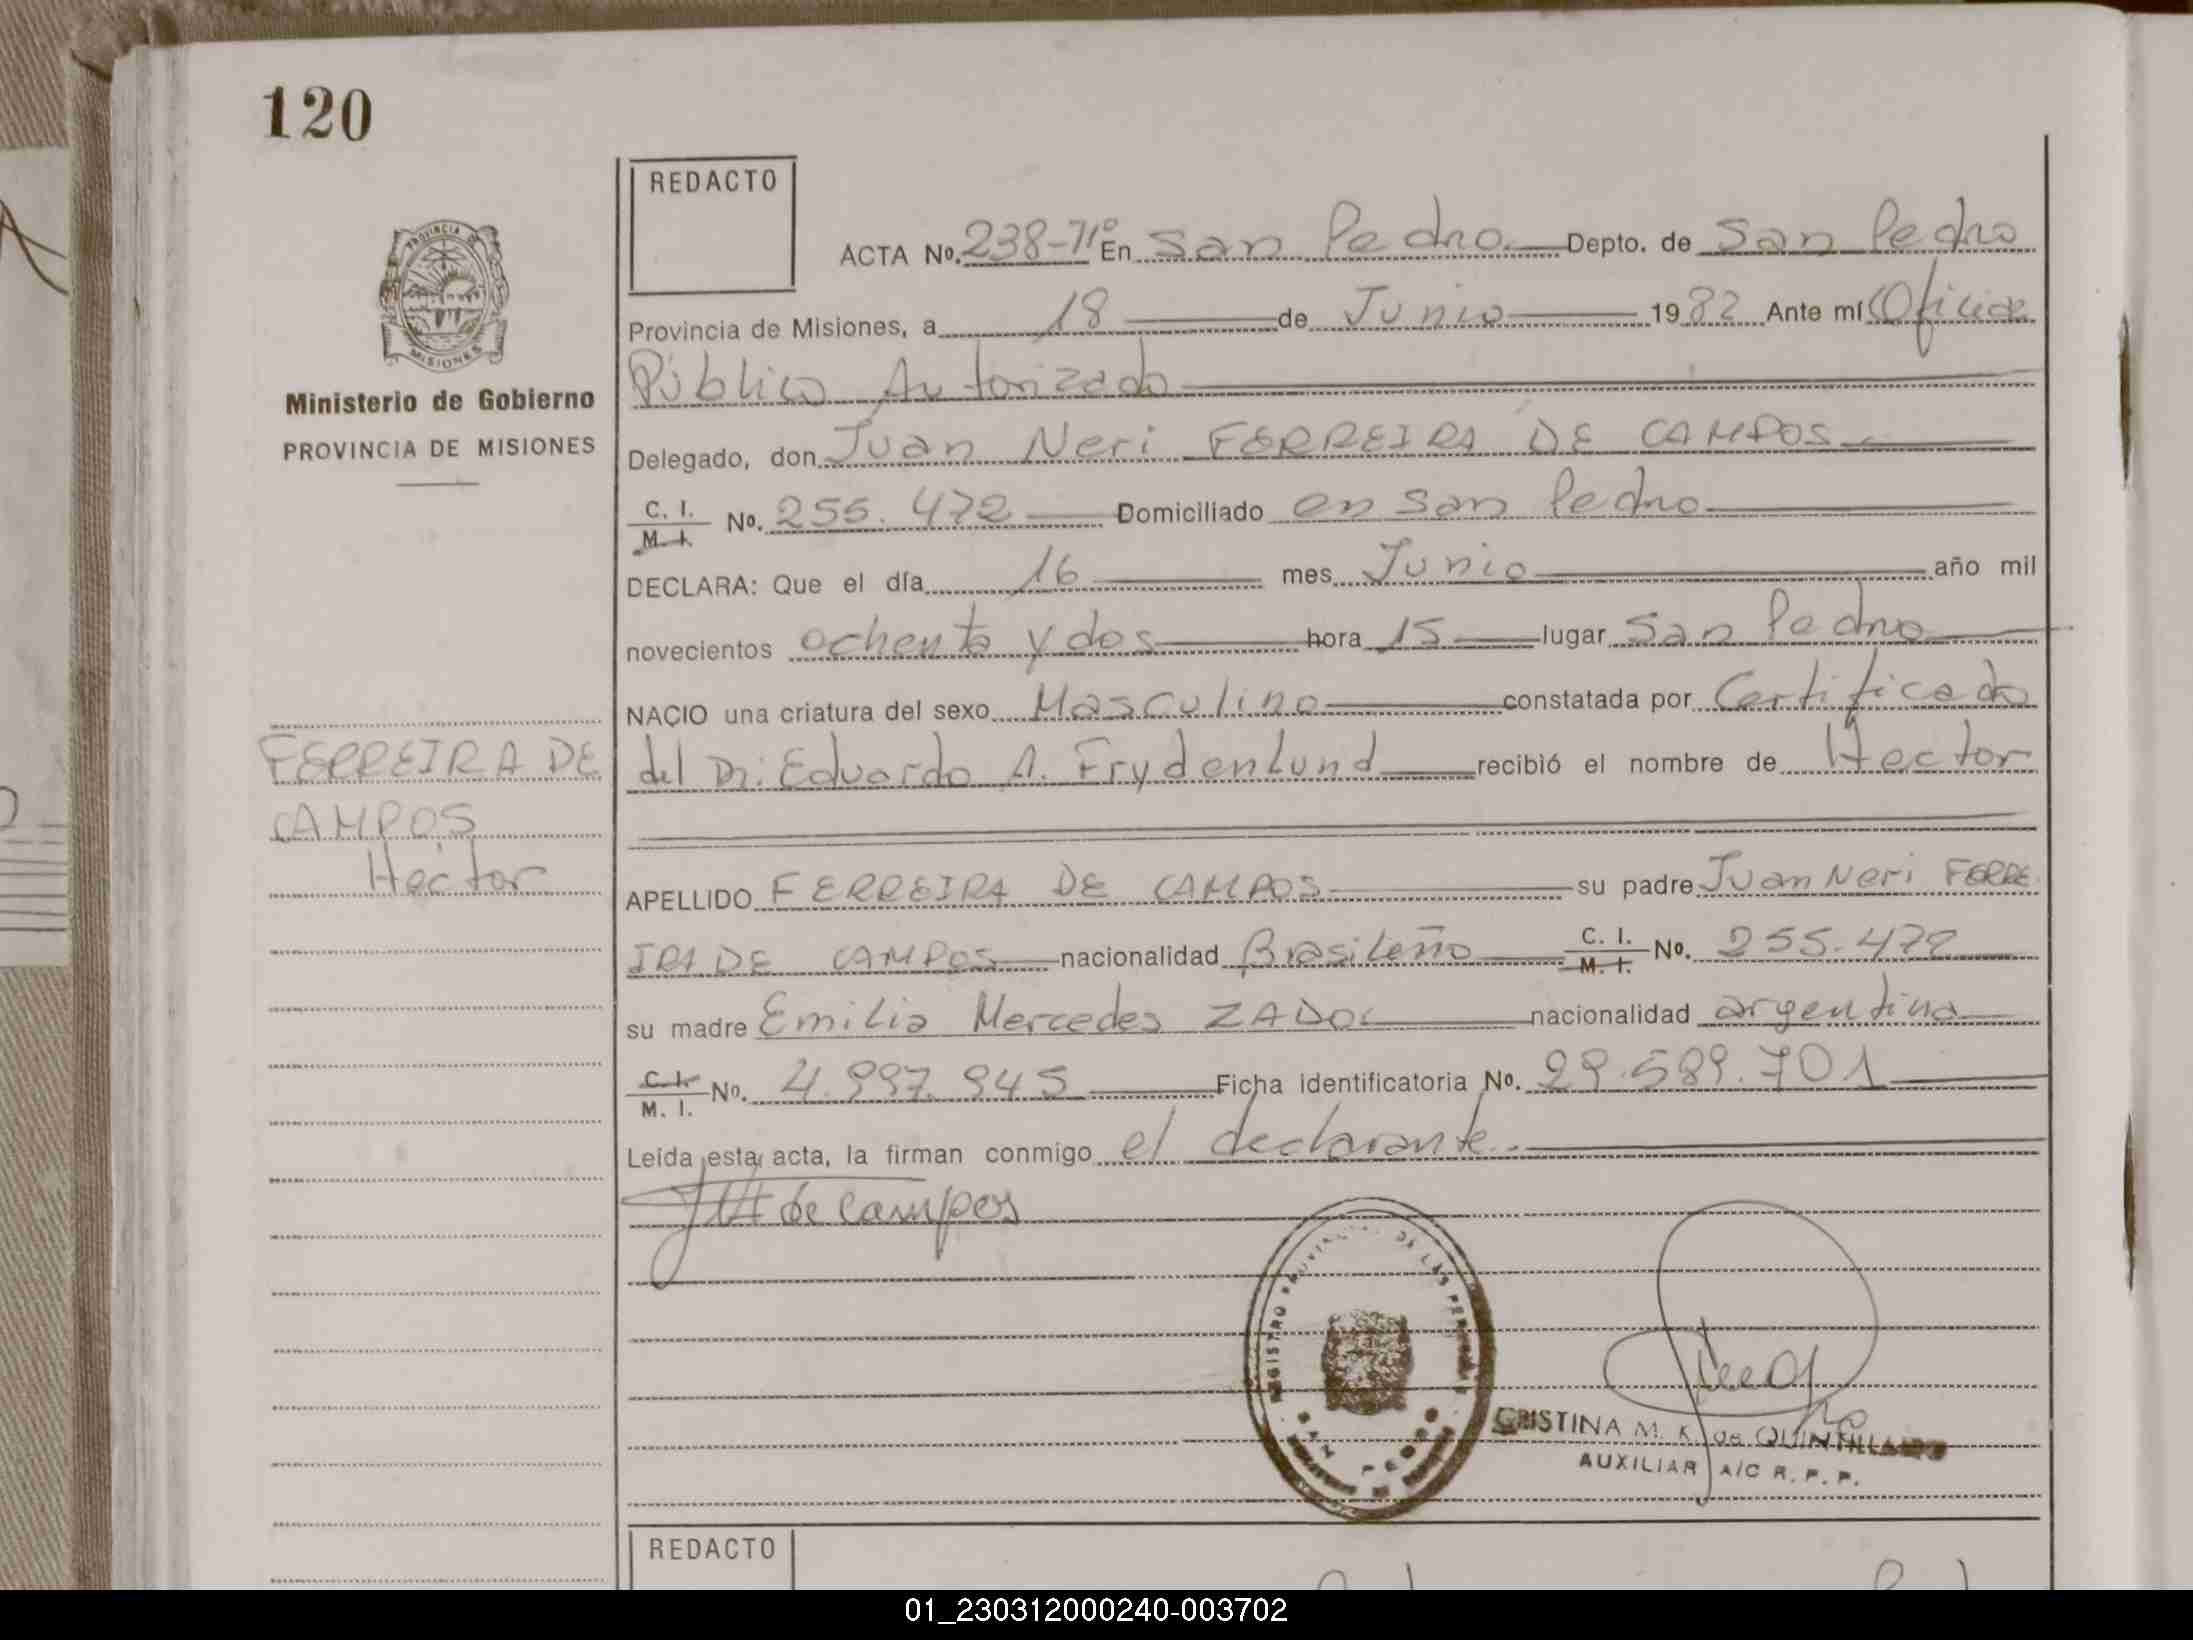 120
REDACTO
ACTA No. 238-71º En San Pedro Depto. de San Pedro
Provincia de Misiones, a 18 de Junio 1982 Ante mí Oficial
Público Autorizado
Delegado, don Juan Neri FERREIRA DE CAMPOS
C. I.
M. I. No. 255.472 Domiciliado en San Pedro
DECLARA: Que el día 16 mes Junio año mil
novecientos ochenta y dos hora 15 lugar San Pedro
NACIO una criatura del sexo Masculino constatada por Certificado
del Dr. Eduardo A. Frydenlund recibió el nombre de Hector
APELLIDO FERREIRA DE CAMPOS su padre Juan Neri FERRE
IRA DE CAMPOS nacionalidad Brasileño C. I. M. I. No. 255.472
su madre Emilia Mercedes nacionalidad argentina
C. I.
M. I. No. 4.997.945 Ficha identificatoria No. 29.589.701
Leída esta acta, la firman conmigo el declarante.
de campos
PROVINCIA DE
MISIONES
Ministerio de Gobierno
PROVINCIA DE MISIONES
FERREIRA DE
CAMPOS
Hector
REGISTRO PROVINCIAL DE LAS PERSONAS
SAN PEDRO
CRISTINA M. K. de QUINTILLANO
AUXILIAR A/C R. P. P.
REDACTO
01_230312000240-003702